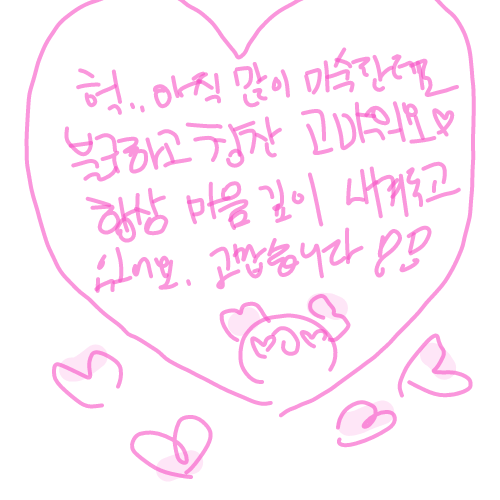 헉.. 아직 많이 미숙한데도
불구하고 칭찬 고마워요♡
항상 마음 깊이 새겨두고
있어요. 고맙습니다